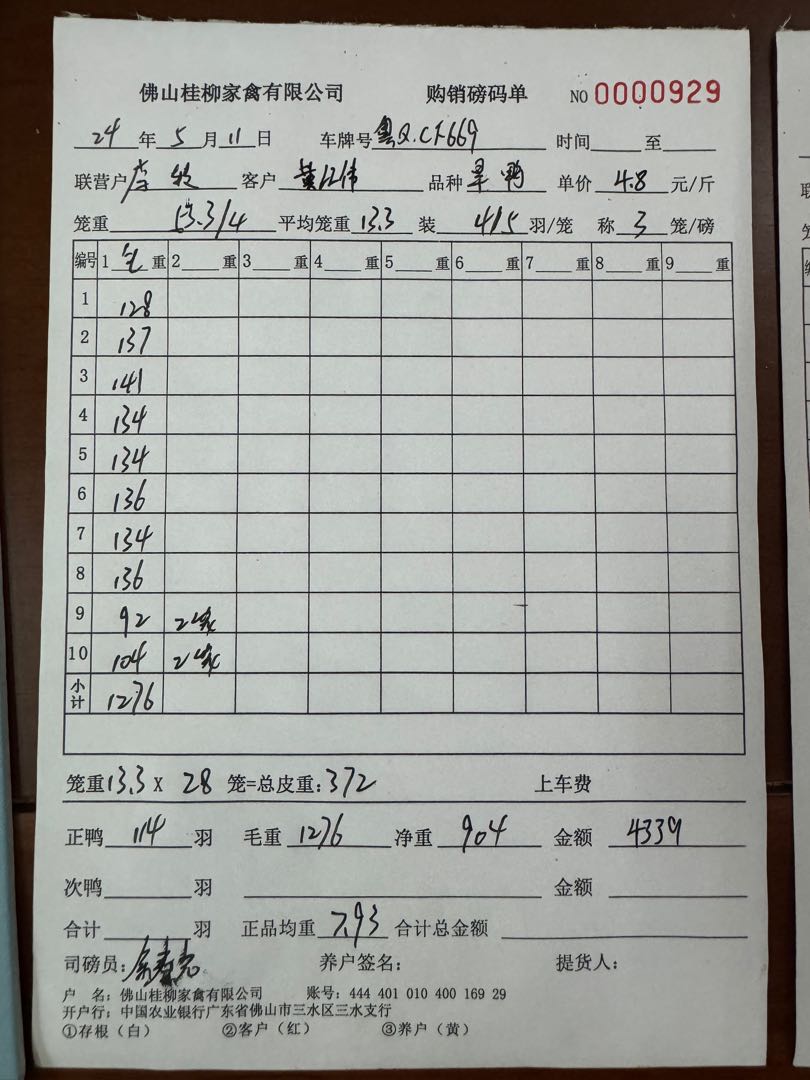 佛山桂柳家禽有限公司 购销磅码单 NO 0000929
24 年 5 月 11 日 车牌号 粤Q.CF669 时间 至
联营户 客户 黄江伟 品种 旱鸭 单价 4.8 元/斤
笼重 53.3/4 平均笼重 13.3 装 4/5 羽/笼 称 3 笼/磅
编号 1 毛 重 2 重 3 重 4 重 5 重 6 重 7 重 8 重 9 重
1 128
2 137
3 141
4 134
5 134
6 136
7 134
8 136
9 92 2笼
10 104 2笼
小计 1276
笼重 13.3 X 28 笼=总皮重: 372 上车费
正鸭 114 羽 毛重 1276 净重 904 金额 4339
次鸭 羽 金额
合计 羽 正品均重 7.93 合计总金额
司磅员: 养户签名: 提货人:
户 名: 佛山桂柳家禽有限公司 账号: 444 401 010 400 169 29
开户行: 中国农业银行广东省佛山市三水区三水支行
①存根(白) ②客户(红) ③养户(黄)